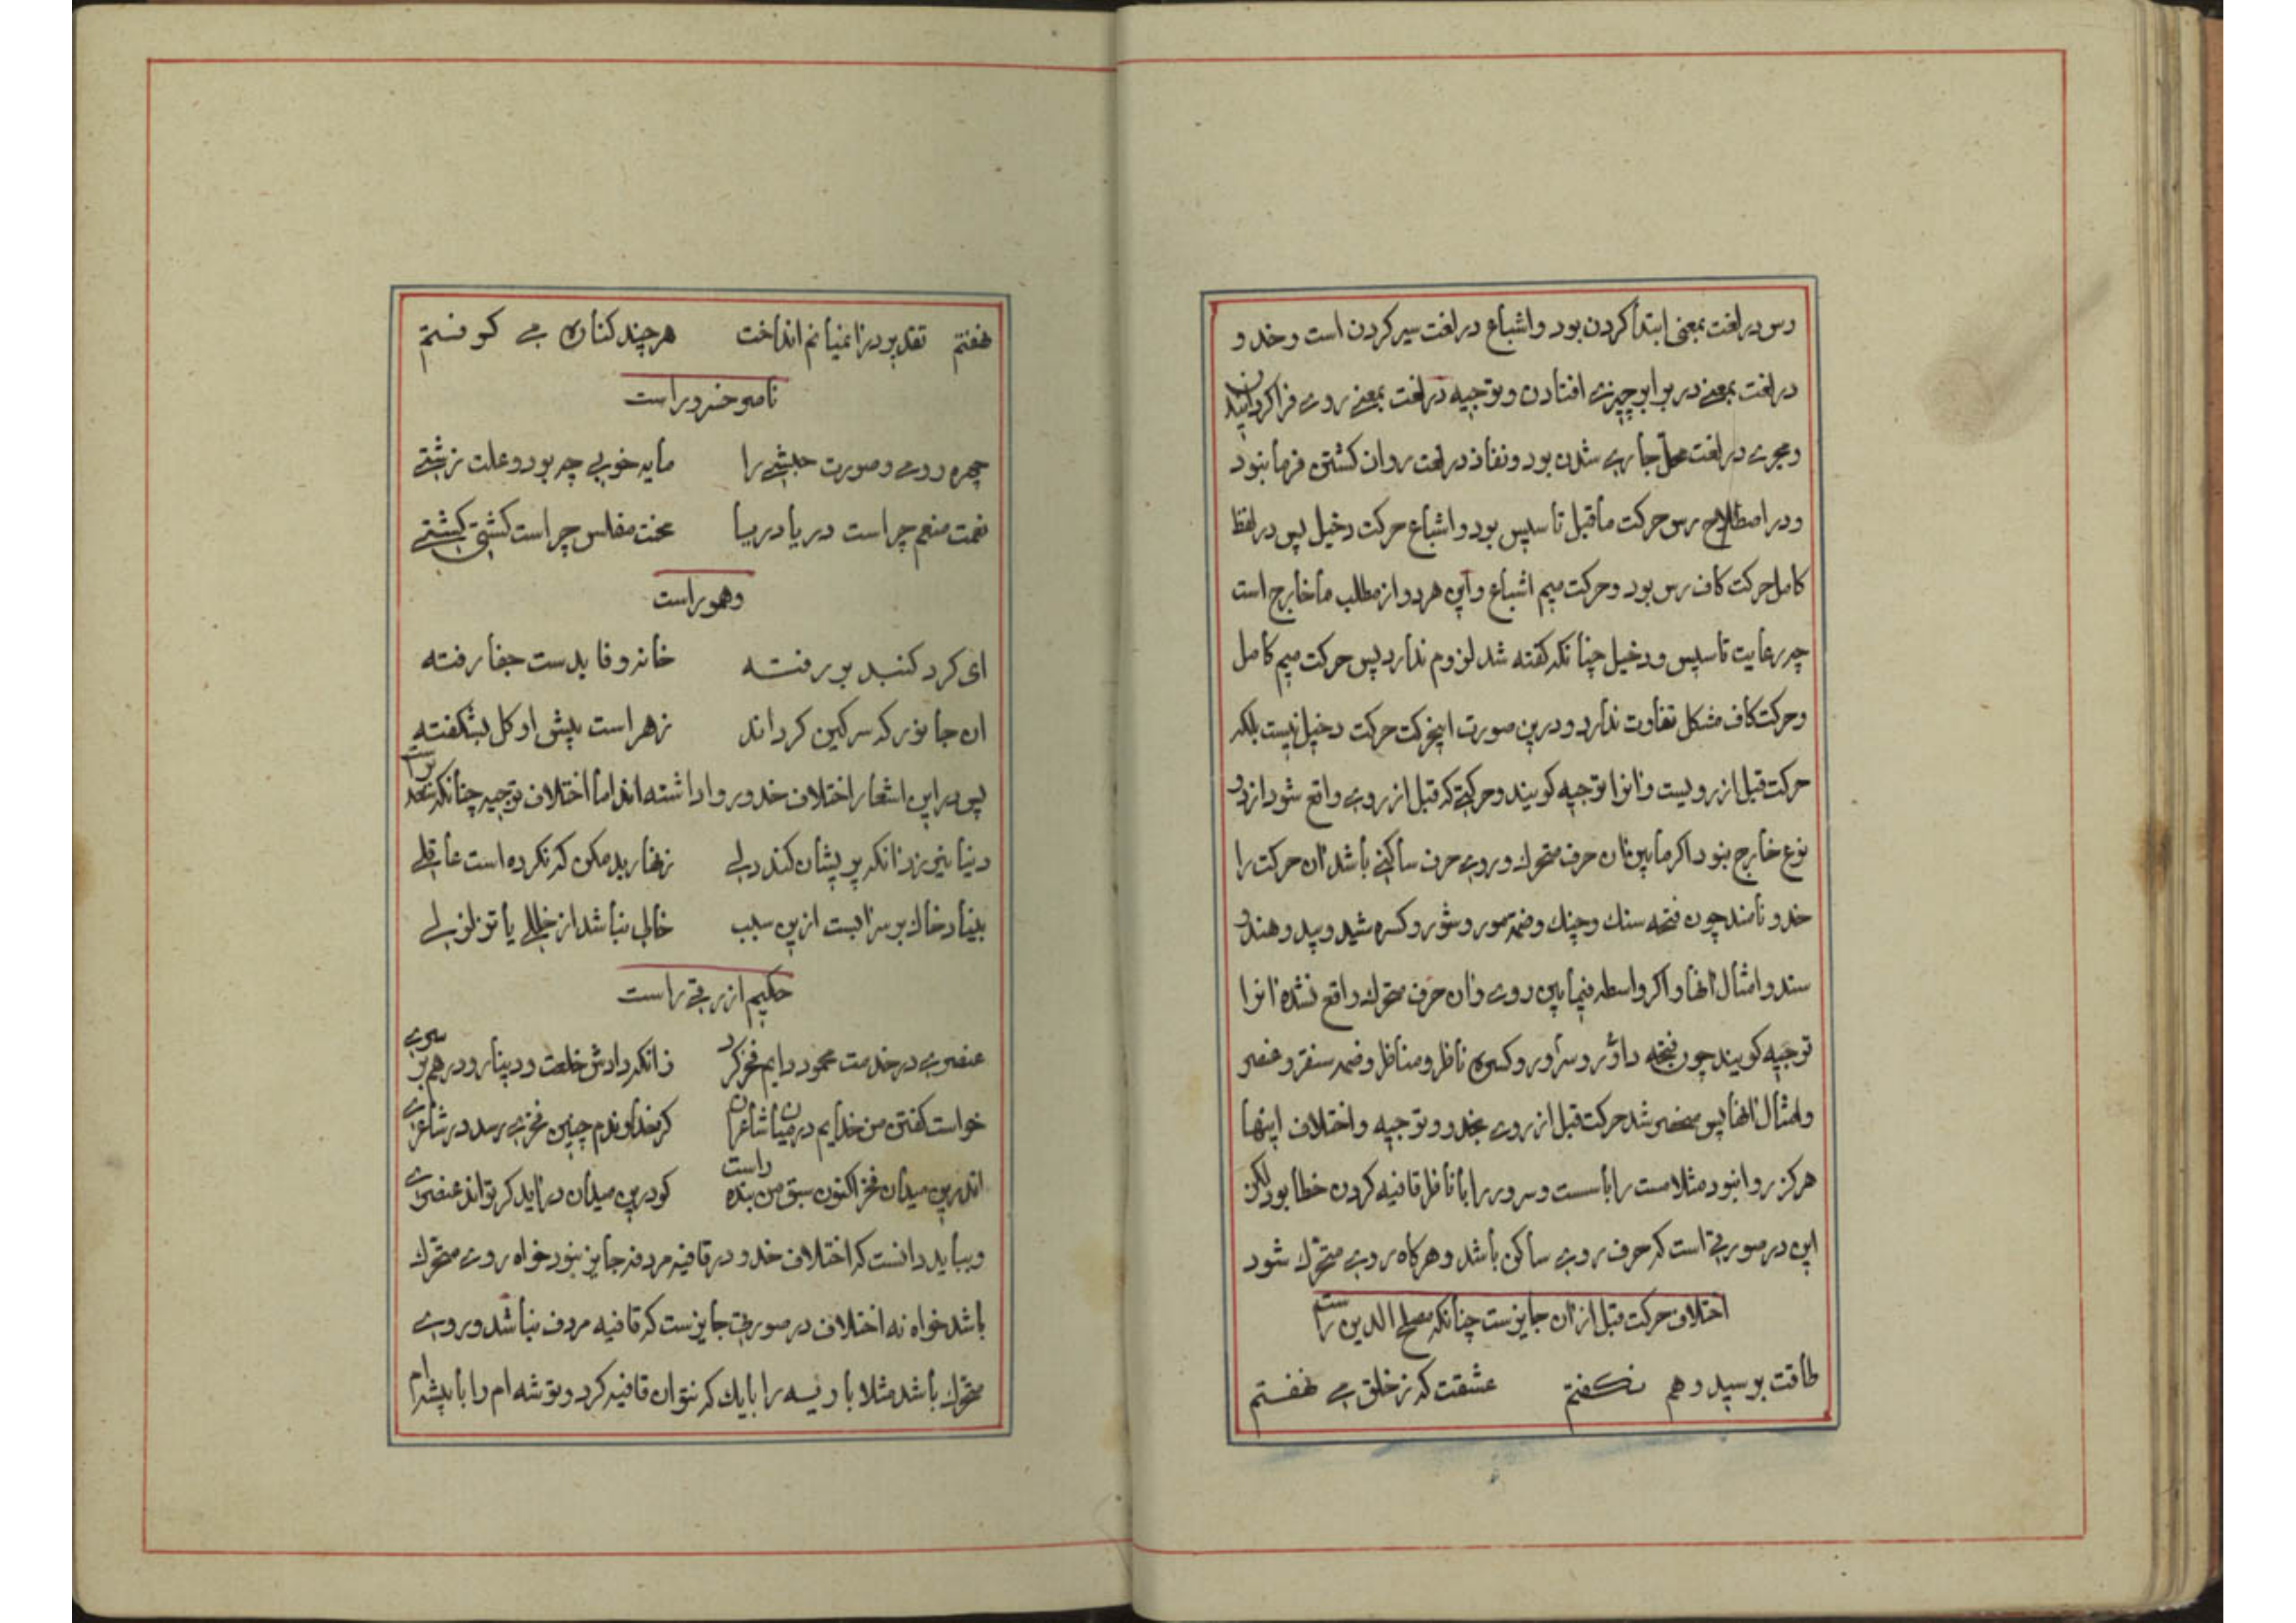 رس در لغت بمعنی ابتدا کردن بود و اشباع در لغت سیر کردن است و خدو
در لغت بمعنی در برابر چیزی افتادن و توجیه در لغت بمعنی روی فرا کردانیدن
و مجری در لغت محل جاری شدن بود و نفاذ در لغت روان کشتن فرما بنود
و در اصطلاح رس حرکت ماقبل تاسیس بود و اشباع حرکت دخیل پس در لفظ
کامل حرکت کاف رس بود و حرکت میم اشباع و این هر دو از مطلب ما خارج است
چه رعایت تاسیس و دخیل چنانکه کفته شد لزوم ندارد پس حرکت میم کامل
و حرکت کاف مشکل تفاوت ندارد و درین صورت اینحرکت حرکت دخیل نیست بلکه
حرکت قبل از رویست و انرا توجیه کویند و حرکتی که قبل از روی واقع شود از دو
نوع خارج بنود اکر مابین ان حرف متحرک و روی حرف ساکنی باشد ان حرکت را
خدو نامند چون فتحه سنک و چنک و ضمه مور و شور و کسره شید و پید و هند و
سند و امثال انها و اکر واسطه فیمابین روی و ان حرف متحرک واقع نشده انرا
توجیه کویند چون فتحه داور و سراور و کسره ناظر و مناظر و ضمه سنقر و عنصر
و امثال انها پس منحصر شد حرکت قبل از روی بخدو و توجیه و اختلاف اینها
هرکز روا نبود مثلا مست را با سست و سرور را با ناظر قافیه کردن خطا بود لکن
این در صورتی است که حرف روی ساکن باشد و هرکاه روی متحرک شود
اختلاف حرکت قبل از ان جایزست چنانکه مصلح الدین راست
طاقت برسید و هم بکفتم عشقت که ز خلق می نهفتم
نهفتم تقدیر درا نمیانم انداخت هرچند کناره می کرفتم
ناصر خسرو راست
چهره رومی و صورت حبشی را مایه خوبی چه بود و علت زشتی
نعمت منعم چراست دریا دریا محنت مفلس چراست کشتی کشتی
وهو راست
ای کرد کنبد بر رفته خانه وفا بدست جفا رفته
ان جانور که سرکین کرداند زهر است پیش او کل بشکفته
پس در این اشعار اختلاف خدو روا داشته اند اما اختلاف توجیه چنانکه سعد راست
دنیا نیرزد انکه پریشان کند دلی زنهار بد مکن که نکرده است عاقلی
بنیاد خاک بر سر ابست ازین سبب خالی نباشد از خللی یا تزلزلی
حکیم ازرقی راست
عنصری در خدمت محمود دایم فخر کرد زانکه دادش خلعت و دینار و درهم بر سری
خواست کفتن من خدایم در میان شاعران کر خداوندم چنین فخری رسد در شاعری
اندرین میدان فخر اکنون سبق من بنده راست کو درین میدان در اید کر تواند عنصری
و بباید دانست که اختلاف خدو در قافیه مردفه جایز نبود خواه روی متحرک
باشد خواه نه اختلاف در صورتی جایزست که قافیه مردف نباشد و روی
متحرک باشد مثلا با ریسه را بایک که نتوان قافیه کرد و توشه ام را با پیشه ام